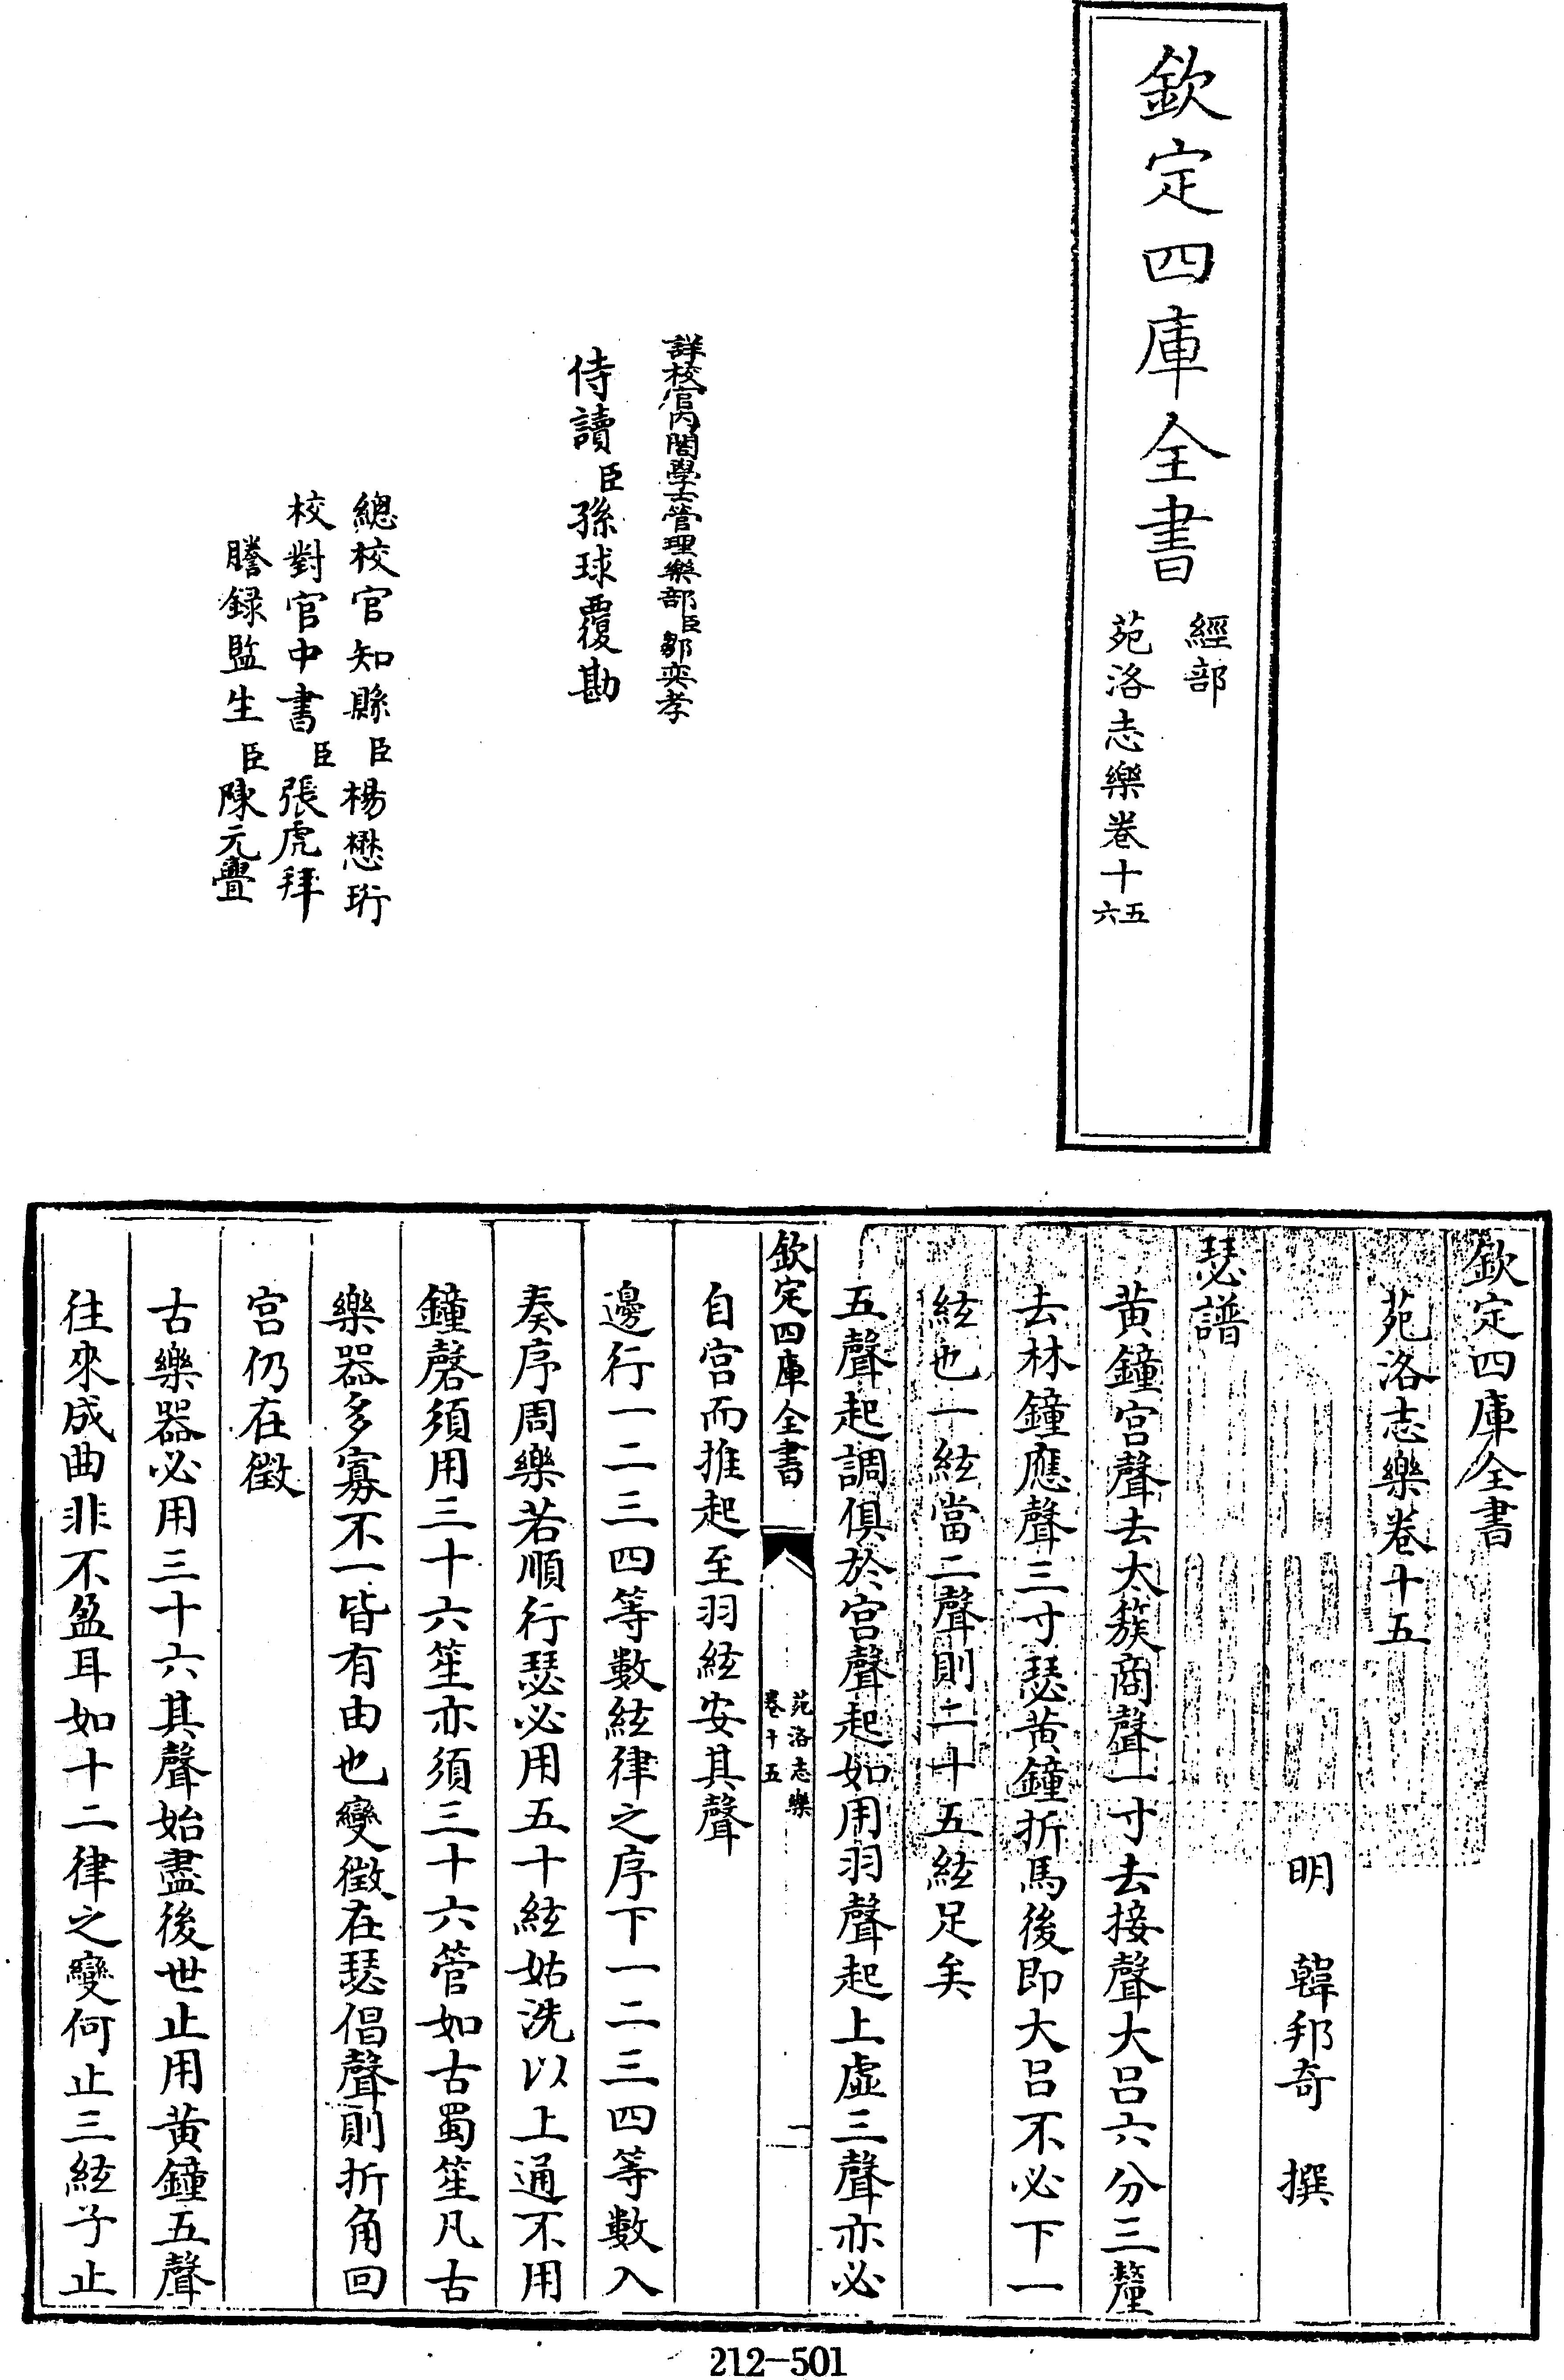 欽定四庫全書
經部
苑洛志樂卷十五六
詳校官內閣學士管理樂部臣鄒奕孝
侍讀臣孫球覆勘
總校官知縣臣楊懋珩
校對官中書臣張虎拜
謄録監生臣陳元
欽定四庫全書
苑洛志樂卷十五
明 韓邦奇 撰
瑟譜
黄鐘宫聲去太簇商聲一寸去接聲大吕六分三釐
去林鐘應聲三寸瑟黄鐘折馬後即大吕不必下一
絃也一絃當二聲則二十五絃足矣
五聲起調俱於宫聲起如用羽聲起上虚三聲亦必
欽定四庫全書
苑洛志樂
卷十五
一
自宫而推起至羽絃安其聲
邊行一二三四等數絃律之序下一二三四等數入
奏序周樂若順行瑟必用五十絃姑洗以上通不用
鐘磬須用三十六笙亦須三十六管如古蜀笙凡古
樂器多寡不一皆有由也變徵在瑟倡聲則折角回
宫仍在徵
古樂器必用三十六其聲始盡後世止用黄鐘五聲
往來成曲非不盈耳如十二律之變何止三絃子止
212-501